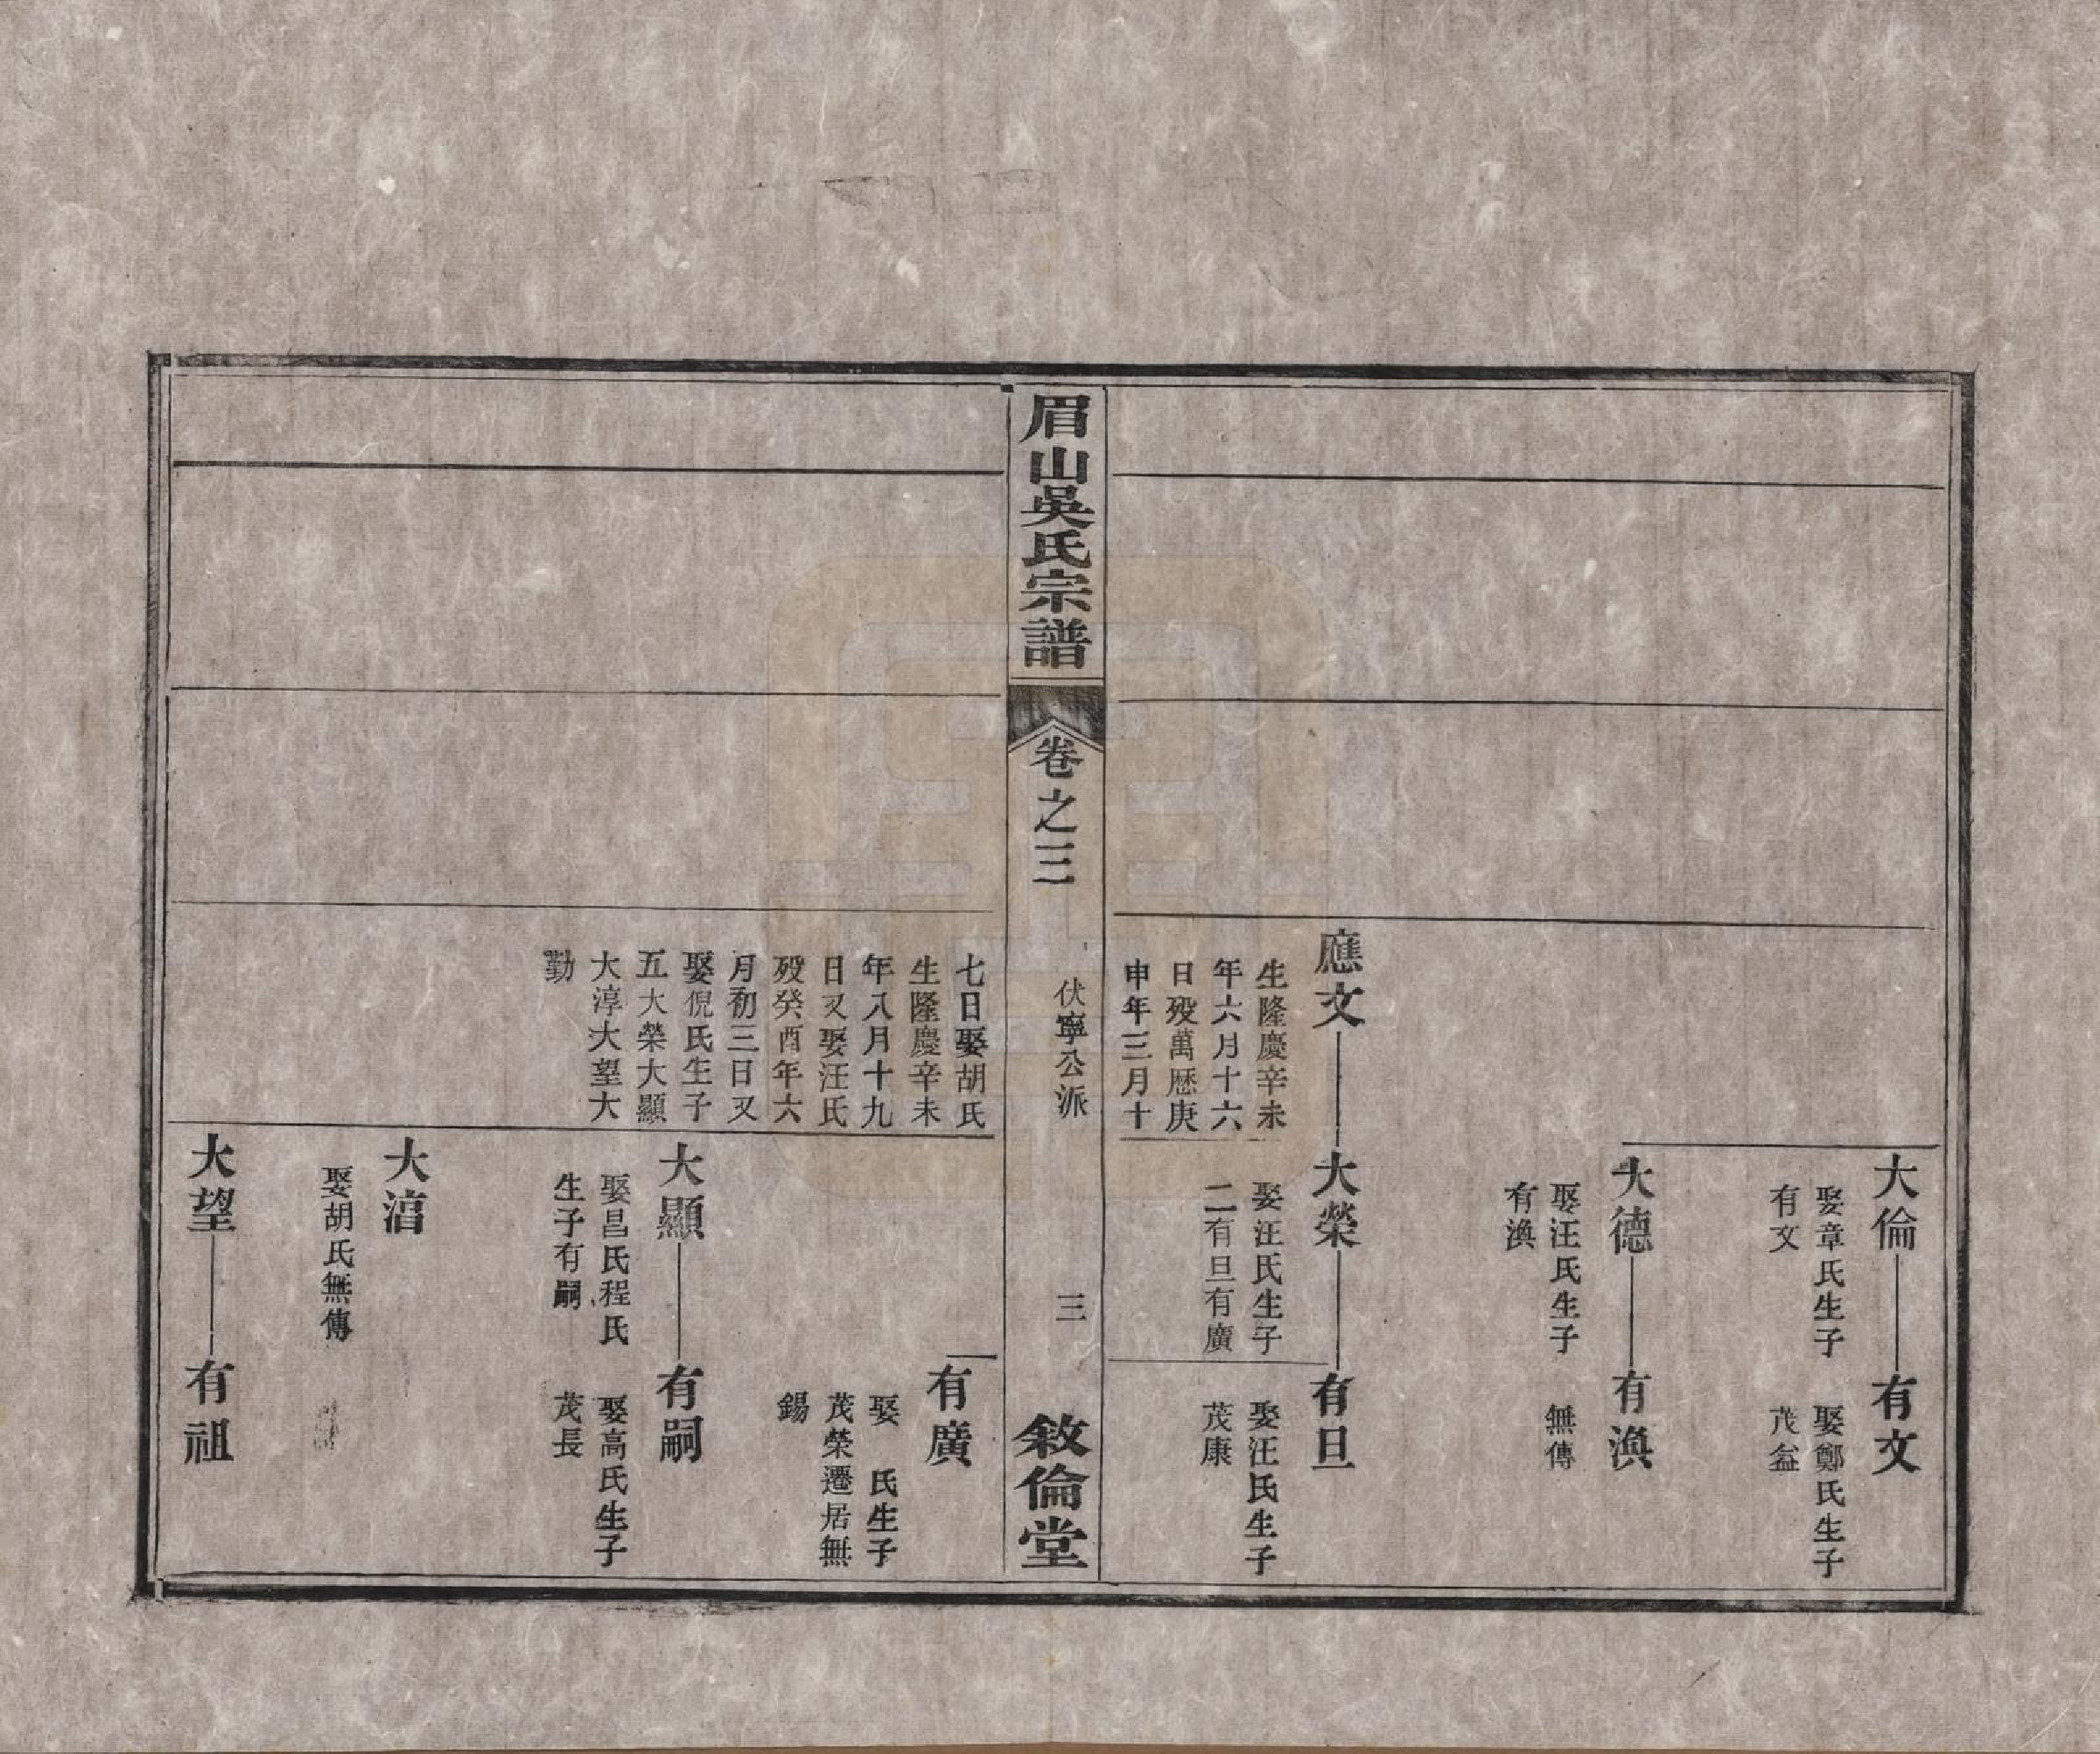 大倫——有文
娶章氏生子
有文
娶鄭氏生子
茂益
大德——有渙
娶汪氏生子
有渙
無傳
應文——大榮——有旦
生隆慶辛未
年六月十六
日歿萬歷庚
申年三月十
娶汪氏生子
二有旦有廣
娶汪氏生子
茂康
眉山吳氏宗譜
卷之三
伏寧公派
三
敘倫堂
七日娶胡氏
生隆慶辛未
年八月十九
日又娶汪氏
歿癸酉年六
月初三日又
娶倪氏生子
五大榮大顯
大淳大望大
勤
有廣
娶 氏生子
茂榮遷居無
錫
大顯——有嗣
娶昌氏程氏
生子有嗣
娶高氏生子
茂長
大淳
娶胡氏無傳
大望——有祖